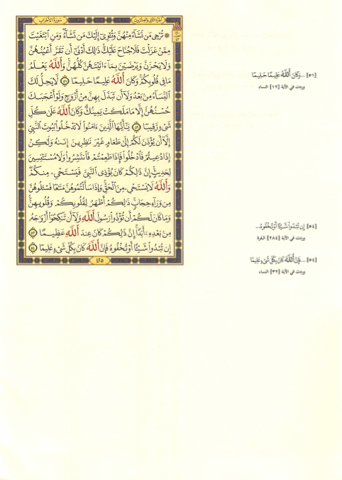 الجزء الثاني والعشرون
سورة الأحزاب
۞ تُرْجِي مَن تَشَآءُ مِنْهُنَّ وَتُـْٔوِيٓ إِلَيْكَ مَن تَشَآءُ وَمَنِ ٱبْتَغَيْتَ
مِمَّنْ عَزَلْتَ فَلَا جُنَاحَ عَلَيْكَ ذَٰلِكَ أَدْنَىٰٓ أَن تَقَرَّ أَعْيُنُهُنَّ
وَلَا يَحْزَنَّ وَيَرْضَيْنَ بِمَآ ءَاتَيْتَهُنَّ كُلُّهُنَّ وَٱللَّهُ يَعْلَمُ
مَا فِي قُلُوبِكُمْ وَكَانَ ٱللَّهُ عَلِيمًا حَلِيمًا ٥١ لَّا يَحِلُّ لَكَ
ٱلنِّسَآءُ مِنۢ بَعْدُ وَلَآ أَن تَبَدَّلَ بِهِنَّ مِنْ أَزْوَٰجٍ وَلَوْ أَعْجَبَكَ
حُسْنُهُنَّ إِلَّا مَا مَلَكَتْ يَمِينُكَ وَكَانَ ٱللَّهُ عَلَىٰ كُلِّ
شَيْءٍ رَّقِيبًا ٥٢ يَٰٓأَيُّهَا ٱلَّذِينَ ءَامَنُوا۟ لَا تَدْخُلُوا۟ بُيُوتَ ٱلنَّبِيِّ
إِلَّآ أَن يُؤْذَنَ لَكُمْ إِلَىٰ طَعَامٍ غَيْرَ نَٰظِرِينَ إِنَىٰهُ وَلَٰكِنْ
إِذَا دُعِيتُمْ فَٱدْخُلُوا۟ فَإِذَا طَعِمْتُمْ فَٱنتَشِرُوا۟ وَلَا مُسْتَـْٔنِسِينَ
لِحَدِيثٍ إِنَّ ذَٰلِكُمْ كَانَ يُؤْذِي ٱلنَّبِيَّ فَيَسْتَحْيِۦ مِنكُمْ
وَٱللَّهُ لَا يَسْتَحْيِۦ مِنَ ٱلْحَقِّ وَإِذَا سَأَلْتُمُوهُنَّ مَتَٰعًا فَسْـَٔلُوهُنَّ
مِن وَرَآءِ حِجَابٍ ذَٰلِكُمْ أَطْهَرُ لِقُلُوبِكُمْ وَقُلُوبِهِنَّ
وَمَا كَانَ لَكُمْ أَن تُؤْذُوا۟ رَسُولَ ٱللَّهِ وَلَآ أَن تَنكِحُوٓا۟ أَزْوَٰجَهُۥ
مِنۢ بَعْدِهِۦٓ أَبَدًا إِنَّ ذَٰلِكُمْ كَانَ عِندَ ٱللَّهِ عَظِيمًا ٥٣
إِن تُبْدُوا۟ شَيْـًٔا أَوْ تُخْفُوهُ فَإِنَّ ٱللَّهَ كَانَ بِكُلِّ شَيْءٍ عَلِيمًا ٥٤
٤٢٥
[٥١] ...وَكَانَ ٱللَّهُ عَلِيمًا حَلِيمًا
وردت في الآية [١٢] النساء
[٥٤] إِن تُبْدُوا۟ شَيْـًٔا أَوْ تُخْفُوهُ...
وردت في الآية [٢٨٤] البقرة
[٥٤] ...فَإِنَّ ٱللَّهَ كَانَ بِكُلِّ شَيْءٍ عَلِيمًا
وردت في الآية [٣٢] النساء